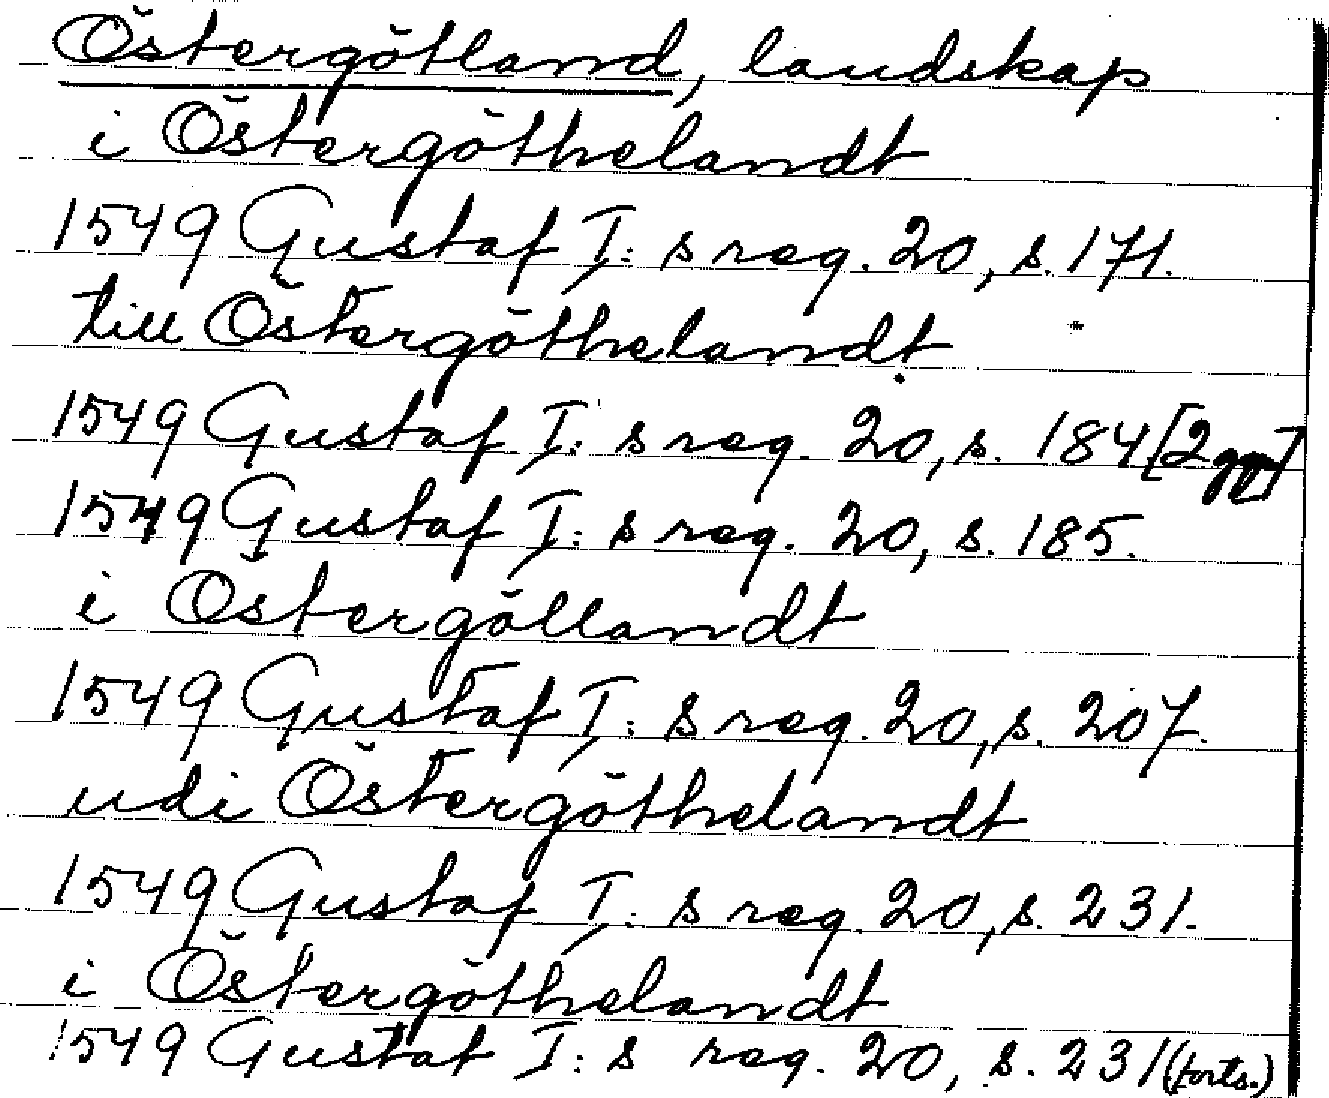 Östergötland, landskap
i Östergöthelandt
1549 Gustaf I: s reg. 20, s. 171.
till Östergöthelandt
1549 Gustaf I: s reg. 20, s. 184 [2 ggr]
1549 Gustaf I: s reg. 20, s. 185.
i Östergöllandt
1549 Gustaf I: s reg. 20, s. 207.
udi Östergöthelandt
1549 Gustaf I: s reg. 20, s. 231.
i Östergöthelandt
1549 Gustaf I: s reg. 20, s. 231 (forts.)